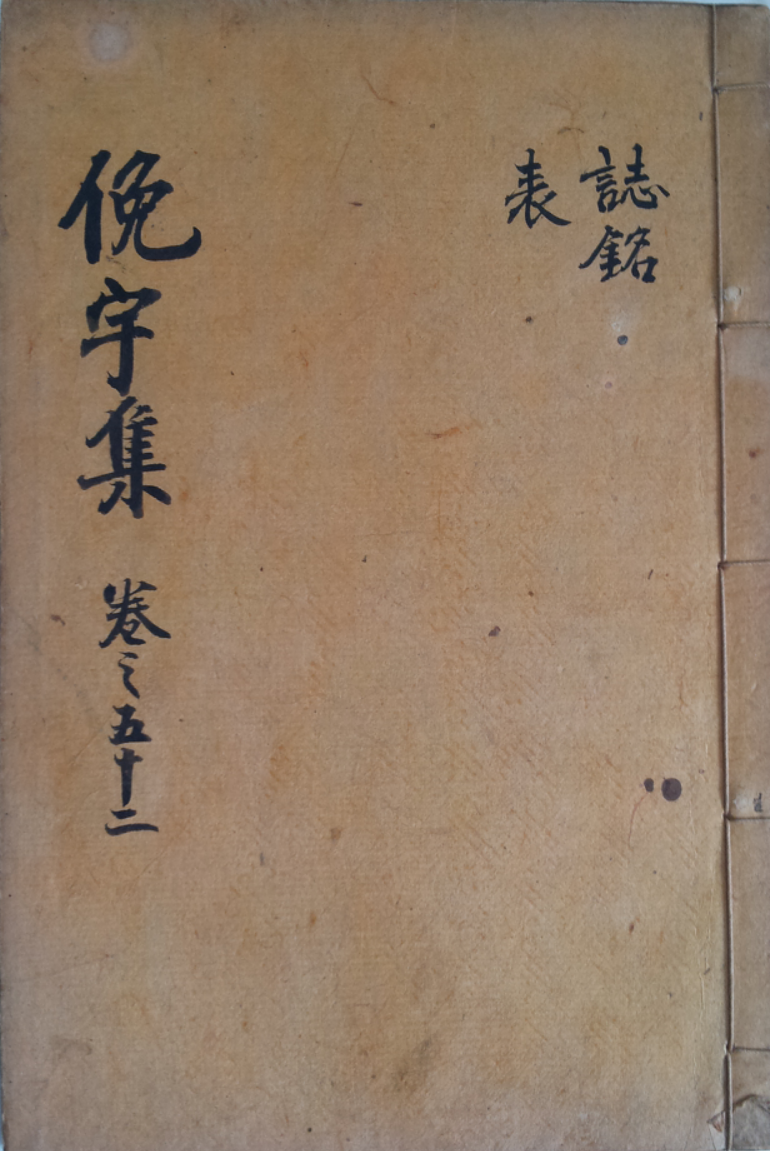 誌銘
表
俛宇集 卷之五十二